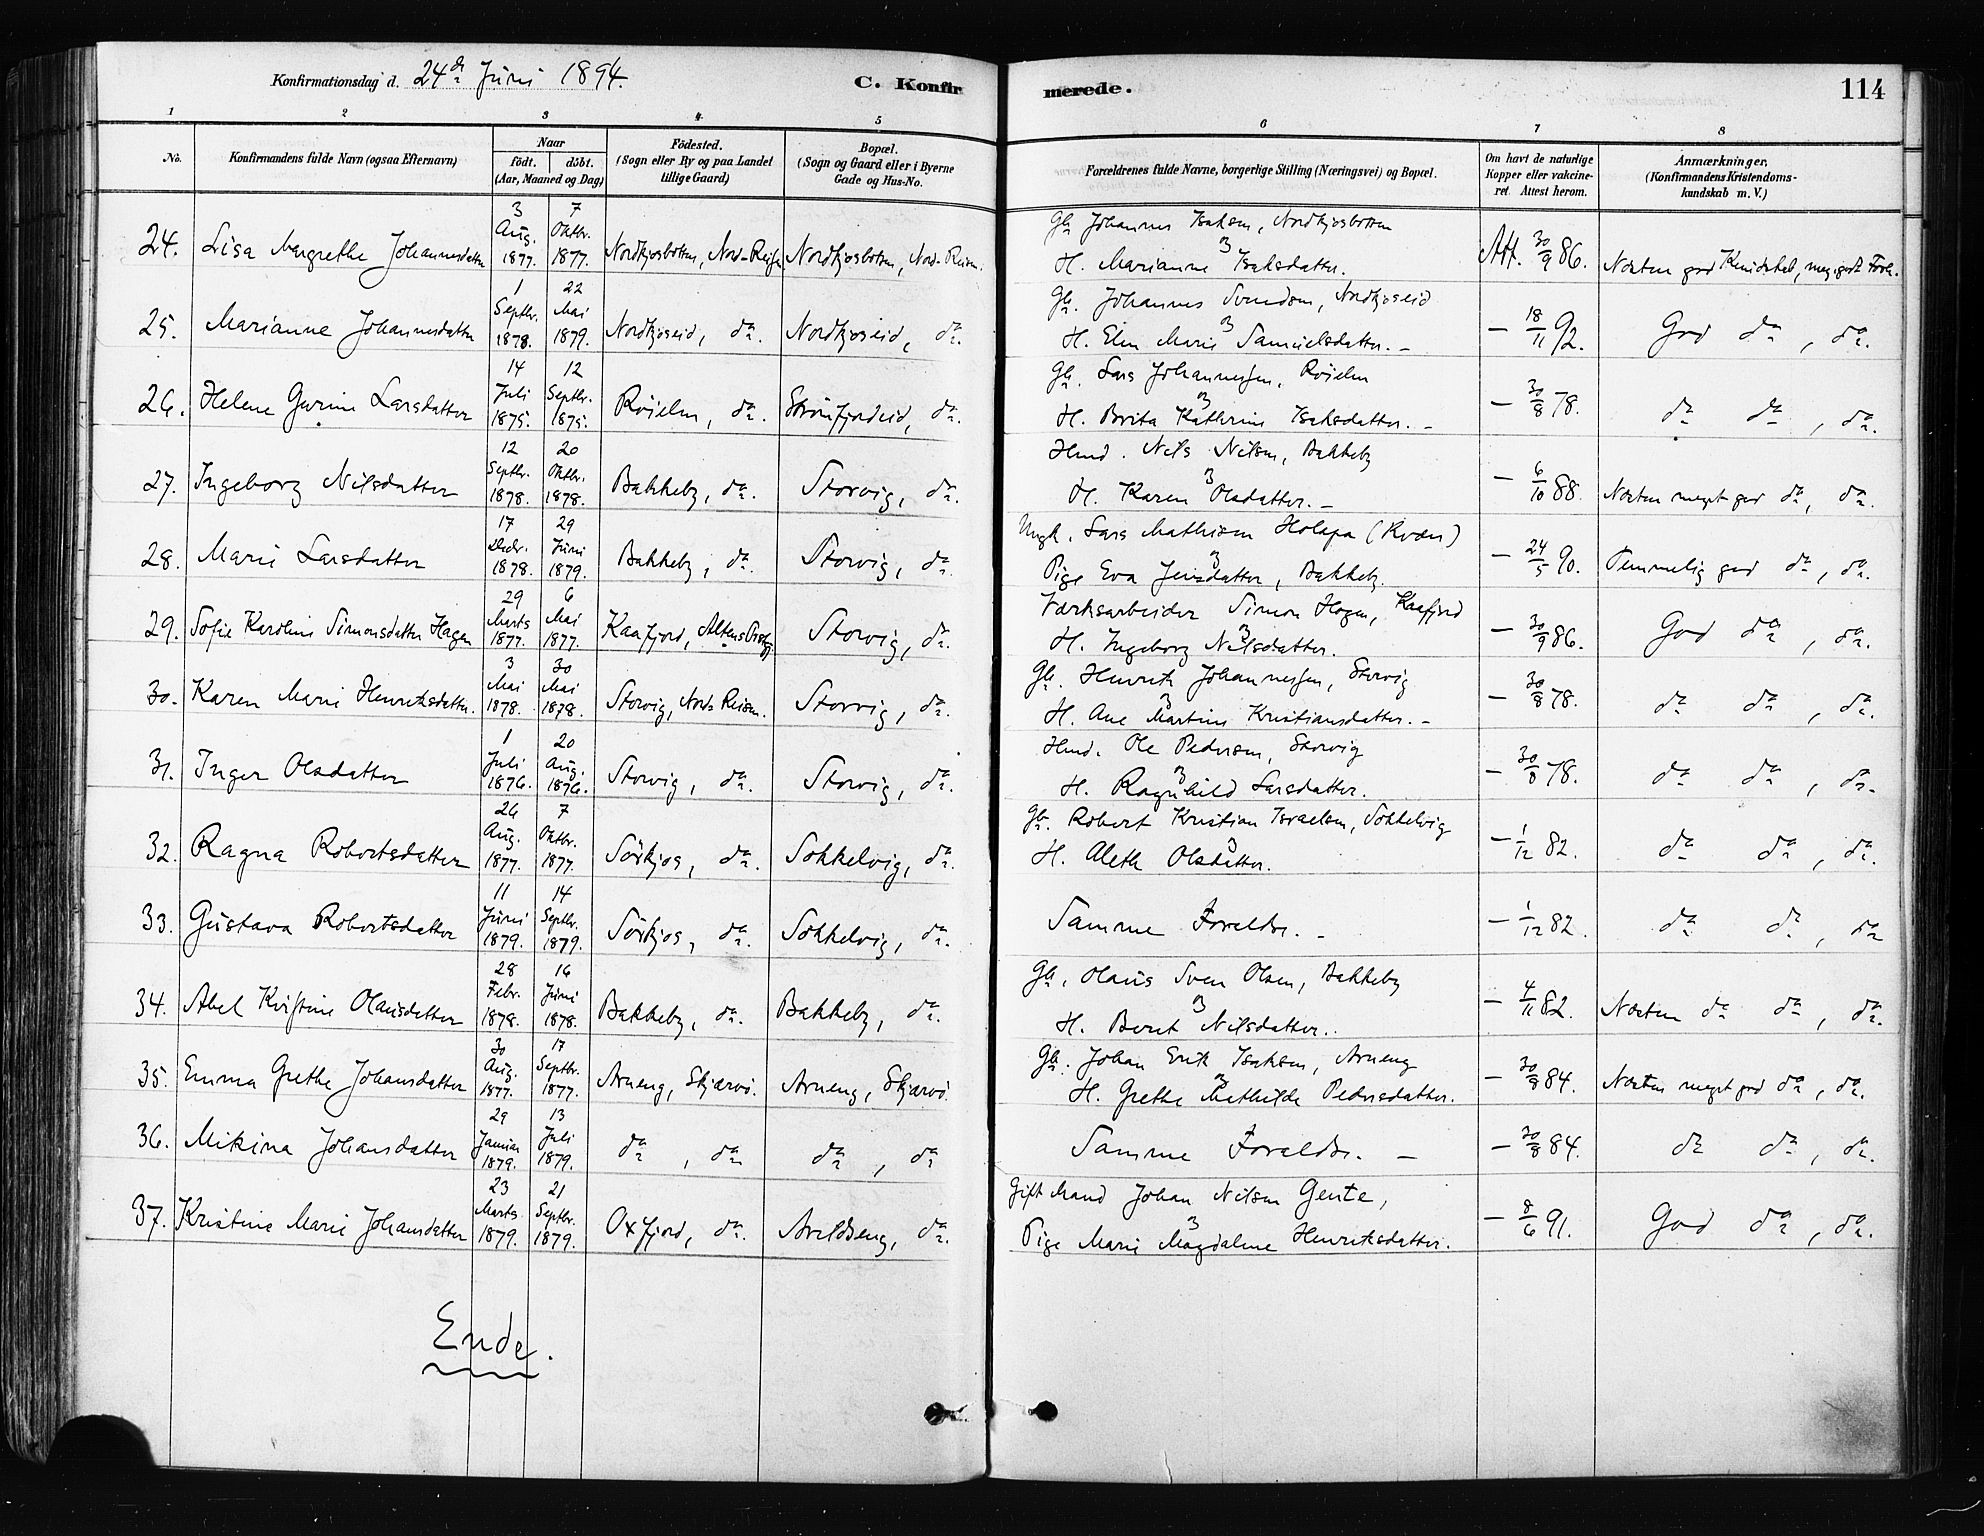 Konfirmationsdag d. 24de Juni 1894.
C. Konfirmerede.
114
1 2 3 4 5 6 7 8
No.
Konfirmandens fulde Navn (ogsaa Efternavn)
Naar
födt. döbt.
(Aar, Maaned og Dag)
Födested.
(Sogn eller By og paa Landet
tillige Gaard)
Bopæl.
(Sogn og Gaard eller i Byerne
Gade og Hus-No.
Forældrenes fulde Navne, borgerlige Stilling (Næringsvei) og Bopæl.
Om havt de naturlige
Kopper eller vakcine-
ret. Attest herom.
Anmærkninger.
(Konfirmandens Kristendoms-
kundskab m. V.)
24. Lisa Margrethe Johannesdatter 3 Aug. 1877. 7 Oktbr. 1877. Nordkjosbotten, Nord-Reisen Nordkjosbotten, Nord-Reisen.
Gb. Johannes Isaksen, Nordkjosbotten
H. Marianne Isaksdatter. Att. 30/9 86. Næsten god Kundskab, meg. godt Forh.
25. Marianne Johannesdatter 1 Septbr. 1878. 22 Mai 1879. Nordkjoseid, do. Nordkjoseid, do.
Gb. Johannes Svendsen, Nordkjoseid
H. Elen Marie Samuelsdatter. – – 18/11 92. God do, do.
26. Helene Gurine Larsdatter 14 Juli 1875. 12 Septbr. 1875. Röielen, do. Straumfjordeid, do.
Gb. Lars Johannessen, Röielen
H. Brita Kathrine Isaksdatter. – – 30/8 78. do do, do.
27. Ingeborg Nilsdatter 12 Septbr. 1878. 20 Oktbr. 1878. Bakkeby, do. Storvig, do.
Hmd. Nils Nilsen, Bakkeby
H. Karen Olsdatter. – – 6/10 88. Næsten meget god do, do.
28. Marie Larsdatter 17 Decbr. 1878. 29 Juni 1879. Bakkeby, do. Storvig, do.
Ungk. Lars Mathisen Holapa (Kvæn)
Pige Eva Jensdatter, Bakkeby. – 24/5 90. Temmelig god do, do.
29. Sofie Karoline Simonsdatter Hagen 29 Marts 1877. 6 Mai 1877. Kaafjord, Altens Prstgj. Storvig, do.
Værksarbeider Simon Hagen, Kaafjord
H. Ingeborg Nilsdatter. – 30/9 86. God do, do.
30. Karen Marie Henriksdatter. 3 Mai 1878. 30 Mai 1878. Storvig, Nord-Reisen. Storvig, do.
Gb. Henrik Johannessen, Storvig
H. Ane Martine Kristiansdatter. – – 30/8 78. do do, do.
31. Inger Olsdatter 1 Juli 1876. 20 Aug. 1876. Storvig, do. Storvig, do.
Hmd. Ole Pedersen, Storvig
H. Ragnhild Larsdatter. – 30/8 78. do do, do.
32. Ragna Robertsdatter 26 Aug. 1877. 7 Oktbr. 1877. Sörkjos, do. Sokkelvig, do.
Gb. Robert Kristian Israelsen, Sokkelvig
H. Aleth Olsdatter. – 1/12 82. do do, do.
33. Gustava Robertsdatter 11 Juni 1879. 14 Septbr. 1879. Sörkjos, do. Sokkelvig, do.
Samme Forældre. – – 1/12 82. do do, do
34. Abel Kristine Olausdatter 28 Febr. 1878. 16 Juni 1878. Bakkeby, do. Bakkeby, do.
Gb. Olaus Sven Olsen, Bakkeby
H. Beret Nilsdatter. – 4/11 82. Næsten do do, do.
35. Emma Grethe Johansdatter 30 Aug. 1877. 17 Septbr. 1877. Arneng, Skjærvö. Arneng, Skjærvö.
Gb. Johan Erik Isaksen, Arneng
H. Grethe Mathilde Pedersdatter. – 30/8 84. Næsten meget god do, do.
36. Mikina Johansdatter 29 Januar 1879. 13 Juli 1879. do, do do, do
Samme Forældre. – – 30/8 84. do do, do.
37. Kristine Marie Johansdatter 23 Marts 1879. 21 Septbr. 1879. Oxfjord, do. Aveldseng, do.
Gift Mand Johan Nilsen Gente,
Pige Marie Magdalene Henriksdatter. – 8/6 91. God do, do.
Ende.